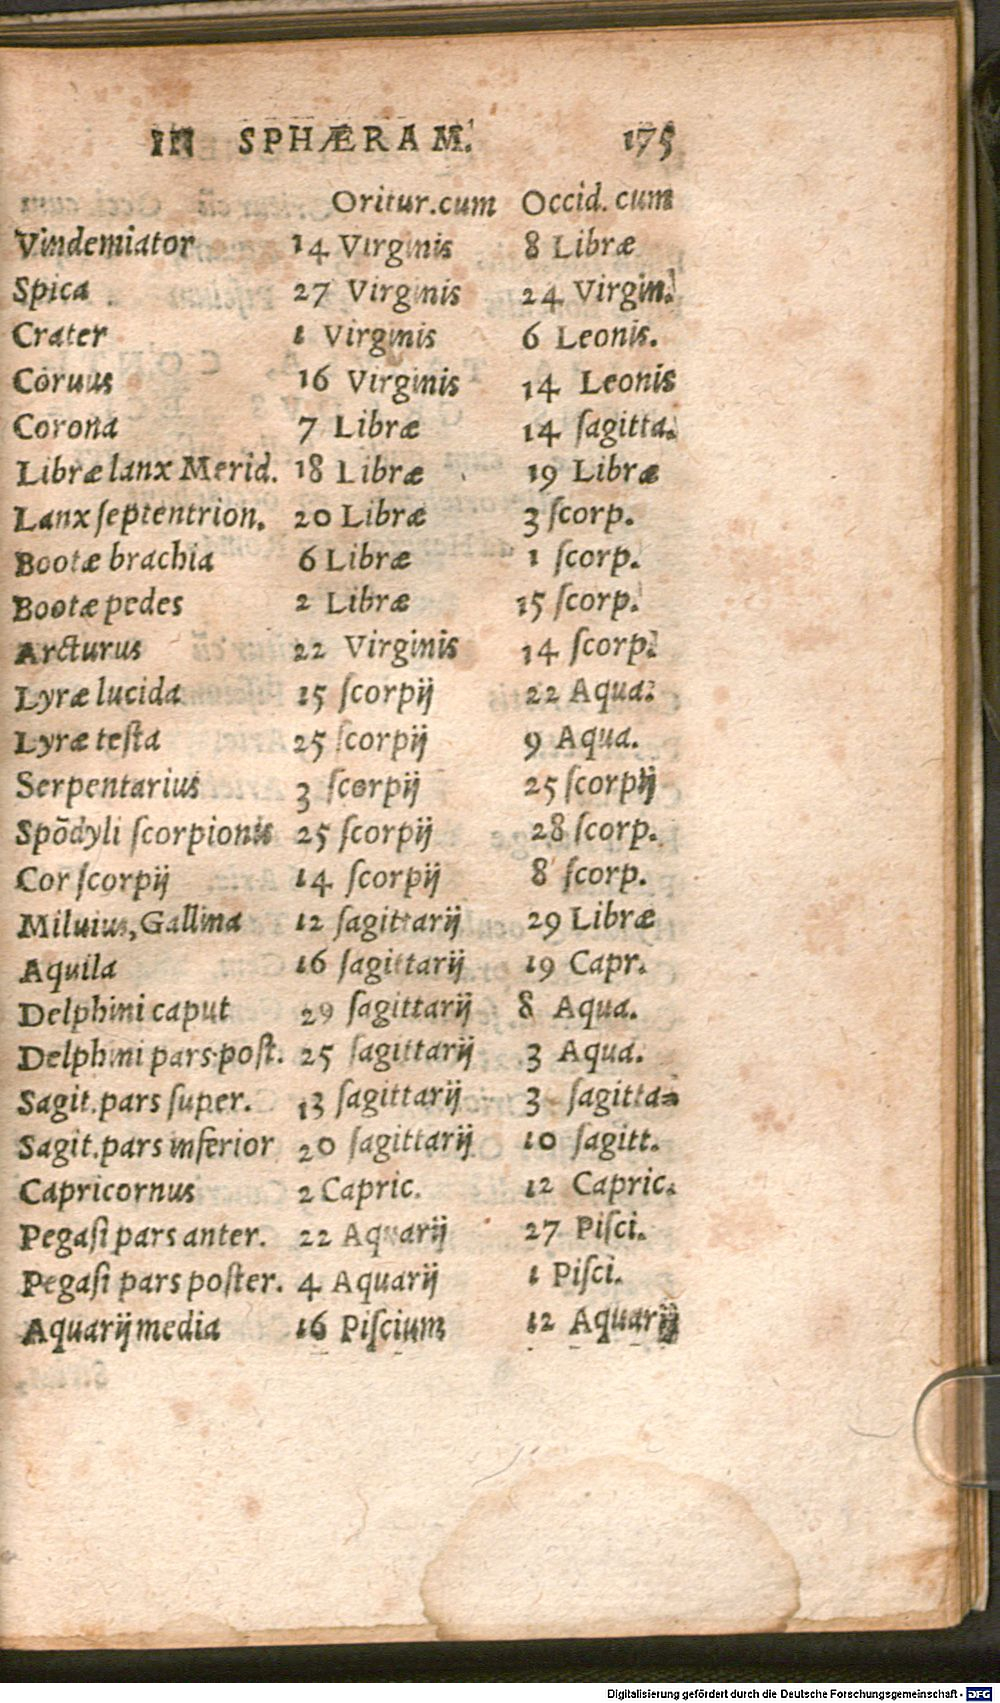 IN SPHÆRAM. 175
Oritur.cum Occid. cum
Vindemiator 14 Virginis 8 Libræ
Spica 27 Virginis 24 Virgin.
Crater 1 Virginis 6 Leonis.
Coruus 16 Virginis 14 Leonis
Corona 7 Libræ 14 ſagitta.
Libræ lanx Merid. 18 Libræ 19 Libræ
Lanx ſeptentrion. 20 Libræ 3 ſcorp.
Bootæ brachia 6 Libræ 1 ſcorp.
Bootæ pedes 2 Libræ 15 ſcorp.
Arcturus 22 Virginis 14 ſcorp.
Lyræ lucida 15 ſcorpij 22 Aqua.
Lyræ teſta 25 ſcorpij 9 Aqua.
Serpentarius 3 ſcorpij 25 ſcorpij
Spōdyli ſcorpionis 25 ſcorpij 28 ſcorp.
Cor ſcorpij 14 ſcorpij 8 ſcorp.
Miluius, Gallina 12 ſagittarij 29 Libræ
Aquila 16 ſagittarij 19 Capr.
Delphini caput 29 ſagittarij 8 Aqua.
Delphini pars poſt. 25 ſagittarij 3 Aqua.
Sagit. pars ſuper. 13 ſagittarij 3 ſagitta-
Sagit. pars inferior 20 ſagittarij 10 ſagitt.
Capricornus 2 Capric. 12 Capric.
Pegaſi pars anter. 22 Aquarij 27 Piſci.
Pegaſi pars poſter. 4 Aquarij 1 Piſci.
Aquarij media 16 Piſcium 12 Aquarij
Digitalisierung gefördert durch die Deutsche Forschungsgemeinschaft - DFG